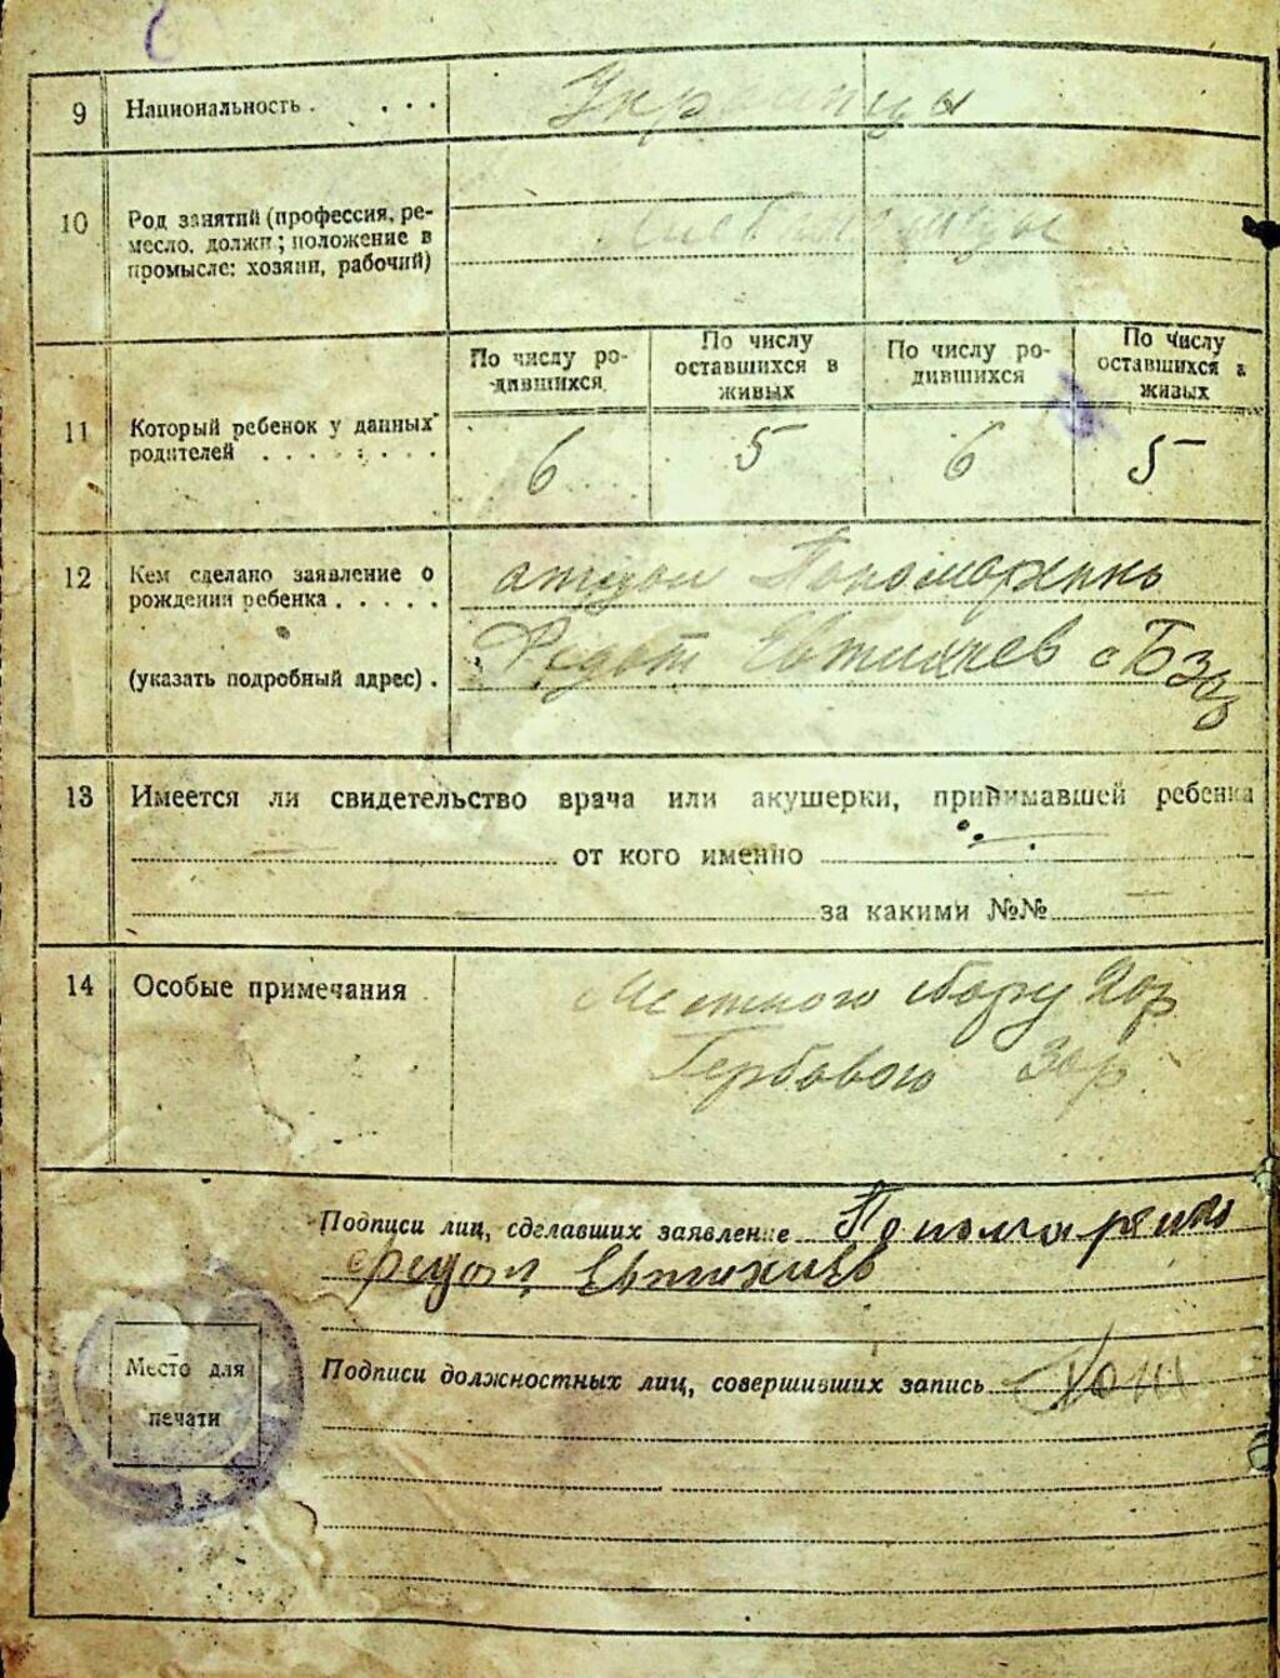 9 Национальность . . . . Украинцы
10 Род занятий (профессия, ре-
месло, должн; положение в
промысле: хозяин, рабочий)
По числу ро-
дившихся
По числу
оставшихся в
живых
По числу ро-
дившихся
По числу
оставшихся в
живых
11 Который ребенок у данных
родителей . . . . . . . .
6 5 6 5
12 Кем сделано заявление о
рождении ребенка . . . . .
(указать подробный адрес) .
отцом Пономаренко
Федот Евтихиев с
13 Имеется ли свидетельство врача или акушерки, принимавшей ребенка
от кого именно
за какими №№
14 Особые примечания
Местного сбору 20 р
Гербового 30 р
Подписи лиц, сделавших заявление Пономаренко
Федот Евтихиев
Место для
печати
Подписи должностных лиц, совершивших запись